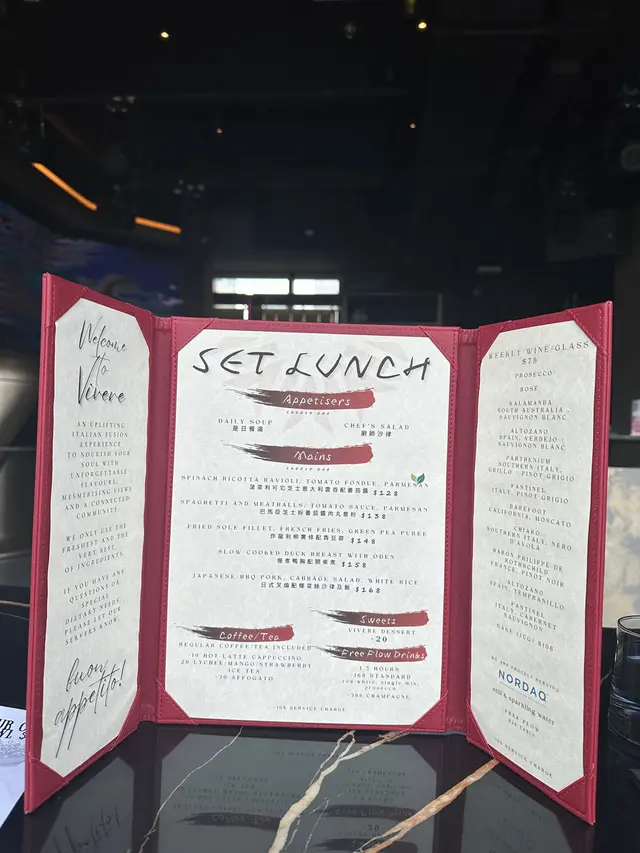 Welcome
to
Vivere
AN UPLIFTING
ITALIAN FUSION
EXPERIENCE
TO NOURISH YOUR
SOUL WITH
UNFORGETTABLE
FLAVOURS,
MESMERISING VIEWS
AND A CONNECTED
COMMUNITY.
WE ONLY USE THE
FRESHEST AND THE
VERY BEST
OF INGREDIENTS.
IF YOU HAVE ANY
QUESTIONS OR
SPECIAL
DIETARY NEEDS,
PLEASE LET OUR
SERVERS KNOW.
buon
appetito!
SET LUNCH
Appetisers
CHOOSE ONE
DAILY SOUP
是日餐湯
CHEF'S SALAD
廚師沙律
Mains
CHOOSE ONE
SPINACH RICOTTA RAVIOLI, TOMATO FONDUE, PARMESAN
菠菜利可它芝士意大利雲吞配蕃茄醬 $128
SPAGHETTI AND MEATBALLS, TOMATO SAUCE, PARMESAN
巴馬臣芝士粉蕃茄醬肉丸意粉 $138
FRIED SOLE FILLET, FRENCH FRIES, GREEN PEA PUREE
炸龍利柳薯條配青豆蓉 $148
SLOW COOKED DUCK BREAST WITH ODEN
慢煮鴨胸配關東煮 $158
JAPANESE BBQ PORK, CABBAGE SALAD, WHITE RICE
日式叉燒配椰菜絲沙律及飯 $168
Coffee/Tea
REGULAR COFFEE/TEA INCLUDED
+10 HOT LATTE/CAPPUCCINO
+20 LYCHEE/MANGO/STRAWBERRY
ICE TEA
+30 AFFOGATO
Sweets
VIVERE DESSERT
+20
Free Flow Drinks
1.5 HOURS
+168 STANDARD
red white, single mix,
prosecco
+388 CHAMPAGNE
+10% SERVICE CHARGE
WEEKLY WINE/GLASS
$78
PROSECCO
ROSÉ
KALAMANDA
SOUTH AUSTRALIA,
SAUVIGNON BLANC
ALTOZANO
SPAIN, VERDEJO
SAUVIGNON BLANC
PARTHENIUM
SOUTHERN ITALY,
GRILLO - PINOT GRIGIO
FANTINEL
ITALY, PINOT GRIGIO
BAREFOOT
CALIFORNIA, MOSCATO
CHIARO
SOUTHERN ITALY, NERO
D'AVOLA
BARON PHILIPPE DE
ROTHSCHILD
FRANCE, PINOT NOIR
ALTOZANO
SPAIN, TEMPRANILLO
FANTINEL
ITALY, CABERNET
SAUVIGNON
SAKE (JUG) $108
WE ARE PROUDLY SERVING
NORDAQ
still & sparkling water
FREE FLOW
+10% SERVICE CHARGE